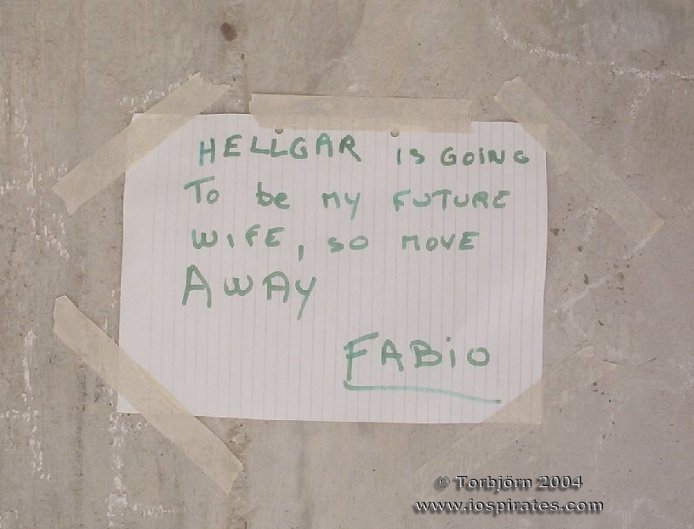 HELLGAR is GOING
To be MY FUTURE
WIFE, so MOVE
AWAY
FABiO
© Torbjörn 2004
www.iospirates.com